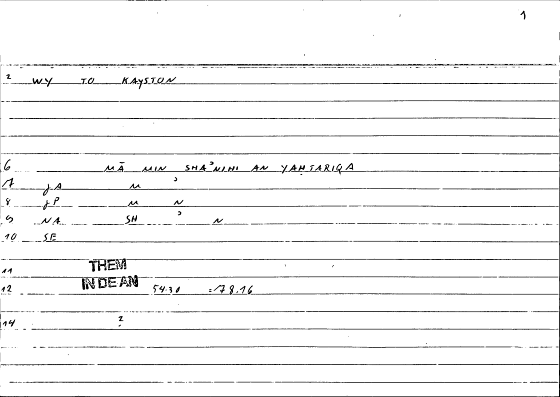 1
2 WY TO KAYSTON
6 MĀ MIN SHAʾNIHI AN YAḤTARIQA
7 JA M ʾ
8 JP M N
9 NA SH ʾ N
10 SE
11 THEM
12 INDEAN 5430 =78.16
14 2